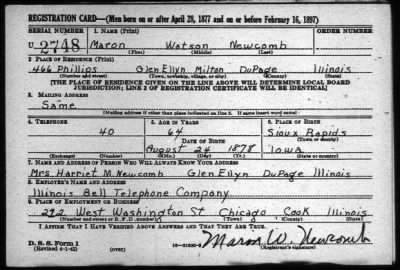 REGISTRATION CARD—(Men born on or after April 28, 1877 and on or before February 16, 1897)
SERIAL NUMBER 1. NAME (Print) ORDER NUMBER
U 2748 Maron Watson Newcomb
(First) (Middle) (Last)
2. PLACE OF RESIDENCE (Print)
466 Phillips Glen Ellyn Milton DuPage Illinois
(Number and street) (Town, township, village, or city) (County) (State)
[THE PLACE OF RESIDENCE GIVEN ON THE LINE ABOVE WILL DETERMINE LOCAL BOARD
JURISDICTION; LINE 2 OF REGISTRATION CERTIFICATE WILL BE IDENTICAL]
3. MAILING ADDRESS
Same
[Mailing address if other than place indicated on line 2. If same insert word same]
4. TELEPHONE 5. AGE IN YEARS 6. PLACE OF BIRTH
40 64 Sioux Rapids
DATE OF BIRTH (Town or county)
August 24 1878 Iowa
(Exchange) (Number) (Mo.) (Day) (Yr.) (State or country)
7. NAME AND ADDRESS OF PERSON WHO WILL ALWAYS KNOW YOUR ADDRESS
Mrs. Harriet M. Newcomb Glen Ellyn DuPage Illinois
8. EMPLOYER'S NAME AND ADDRESS
Illinois Bell Telephone Company
9. PLACE OF EMPLOYMENT OR BUSINESS
212 West Washington St Chicago Cook Illinois
(Number and street or R. F. D. number) (Town) (County) (State)
I AFFIRM THAT I HAVE VERIFIED ABOVE ANSWERS AND THAT THEY ARE TRUE.
D. S. S. Form 1
(Revised 4-1-42) (over) Maron W. Newcomb
(Registrant's signature)